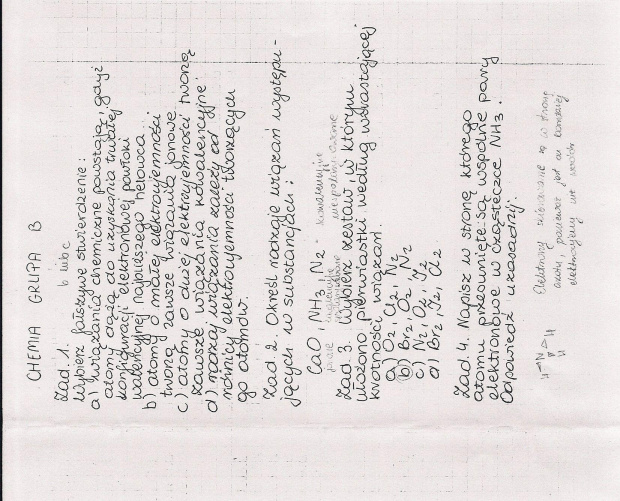 CHEMIA GRUPA B
Zad. 1. b lub c
Wybierz fałszywe stwierdzenie:
a) wiązania chemiczne powstają, gdyż
atomy dążą do uzyskania trwałej
konfiguracji elektronowej powłoki
walencyjnej najbliższego helowca
b) atomy o małej elektroujemności
tworzą zawsze wiązania jonowe
c) atomy o dużej elektroujemności tworzą
zawsze wiązania kowalencyjne
d) rodzaj wiązania zależy od
różnicy elektroujemności tworzących
go atomów.
Zad. 2. Określ rodzaje wiązań występu-
jących w substancjach:
CaO, NH3, N2 - kowalencyjne
Zad 3. Wybierz zestaw, w którym
ułożono pierwiastki według wzrastającej
krotności wiązań.
a) O2, Cl2, N2
b) Br2, O2, N2
c) N2, O2, J2
d) Br2, J2, Cl2
Zad. 4. Napisz w stronę którego
atomu przesunięte są wspólne pary
elektronowe w cząsteczce NH3.
Odpowiedź uzasadnij.
H N H
H
Elektrony skierowane są w stronę
azotu, ponieważ jest on bardziej
elektroujemny niż wodór